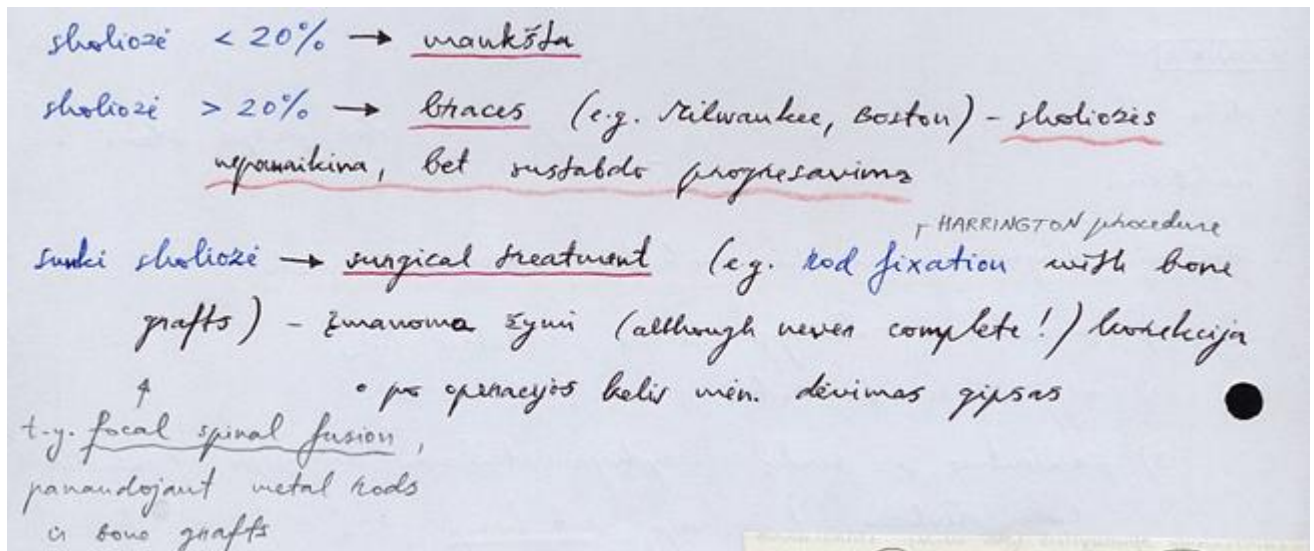 skoliozė < 20% → mankšta
skoliozė > 20% → braces (e.g. Milwaukee, Boston) – skoliozės
nepanaikina, bet sustabdo progresavimą
┌ HARRINGTON procedure
sunki skoliozė → surgical treatment (e.g. rod fixation with bone
grafts) – įmanoma žymi (although never complete!) korekcija
↑ • po operacijos kelis mėn. dėvimas gipsas
t.y. focal spinal fusion,
panaudojant metal rods
ir bone grafts